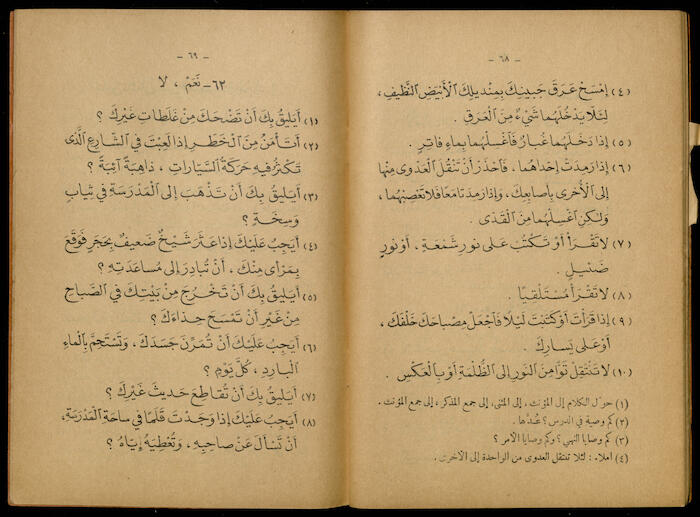 - ٦٨ -
(٤) إِمْسَحْ عَرَقَ جَبِينِكَ بِمِنْدِيلِكَ الْأَبْيَضِ النَّظِيفِ ،
لِئَلَّا يَدْخُلَهُمَا شَيْءٌ مِنَ الْعَرَقِ .
(٥) إِذَا دَخَلَهُمَا غُبَارٌ فَاغْسِلْهُمَا بِمَاءٍ فَاتِرٍ .
(٦) إِذَا رَمِدَتْ إِحْدَاهُمَا ، فَاحْذَرْ أَنْ تَنْقُلَ الْعَدْوَى مِنْهَا
إِلَى الْأُخْرَى بِأَصَابِعِكَ ، وَإِذَا رَمِدَتَا مَعًا فَلَا تَعْصِبْهُمَا ،
وَلٰكِنِ اغْسِلْهُمَا مِنَ الْقَذَى .
(٧) لَا تَقْرَأْ أَوْ تَكْتُبْ عَلَى نُورِ شَمْعَةٍ ، أَوْ نُورٍ
ضَئِيلٍ .
(٨) لَا تَقْرَأْ مُسْتَلْقِيًا .
(٩) إِذَا قَرَأْتَ أَوْ كَتَبْتَ لَيْلًا فَاجْعَلْ مِصْبَاحَكَ خَلْفَكَ ،
أَوْ عَلَى يَسَارِكَ .
(١٠) لَا تَنْتَقِلْ تَوًّا مِنَ النُّورِ إِلَى الظُّلْمَةِ أَوْ بِالْعَكْسِ .
(١) حوّل الكلام إلى المؤنث ، إلى المثنى ، إلى جمع المذكر ، إلى جمع المؤنث .
(٢) كم وصية في الدرس ؟ عُدَّها .
(٣) كم وصايا النهي ؟ وكم وصايا الأمر ؟
(٤) املاء : لئلا تنتقل العدوى من الواحدة إلى الأخرى .
- ٦٩ -
٦٢- نَعَمْ ، لَا
(١) أَيَلِيقُ بِكَ أَنْ تَضْحَكَ مِنْ غَلَطَاتِ غَيْرِكَ ؟
(٢) أَتَأْمَنُ مِنَ الْخَطَرِ إِذَا لَعِبْتَ فِي الشَّارِعِ الَّذِي
تَكْثُرُ فِيهِ حَرَكَةُ السَّيَّارَاتِ ، ذَاهِبَةً آئِبَةً ؟
(٣) أَيَلِيقُ بِكَ أَنْ تَذْهَبَ إِلَى الْمَدْرَسَةِ فِي ثِيَابٍ
وَسِخَةٍ ؟
(٤) أَيَجِبُ عَلَيْكَ إِذَا عَثَرَ شَيْخٌ ضَعِيفٌ بِحَجَرٍ فَوَقَعَ
بِمَرْأًى مِنْكَ ، أَنْ تُبَادِرَ إِلَى مُسَاعَدَتِهِ ؟
(٥) أَيَلِيقُ بِكَ أَنْ تَخْرُجَ مِنْ بَيْتِكَ فِي الصَّبَاحِ
مِنْ غَيْرِ أَنْ تَمْسَحَ حِذَاءَكَ ؟
(٦) أَيَجِبُ عَلَيْكَ أَنْ تُمَرِّنَ جَسَدَكَ ، وَتَسْتَحِمَّ بِالْمَاءِ
الْبَارِدِ ، كُلَّ يَوْمٍ ؟
(٧) أَيَلِيقُ بِكَ أَنْ تُقَاطِعَ حَدِيثَ غَيْرِكَ ؟
(٨) أَيَجِبُ عَلَيْكَ إِذَا وَجَدْتَ قَلَمًا فِي سَاحَةِ الْمَدْرَسَةِ ،
أَنْ تَسْأَلَ عَنْ صَاحِبِهِ ، وَتُعْطِيَهُ إِيَّاهُ ؟